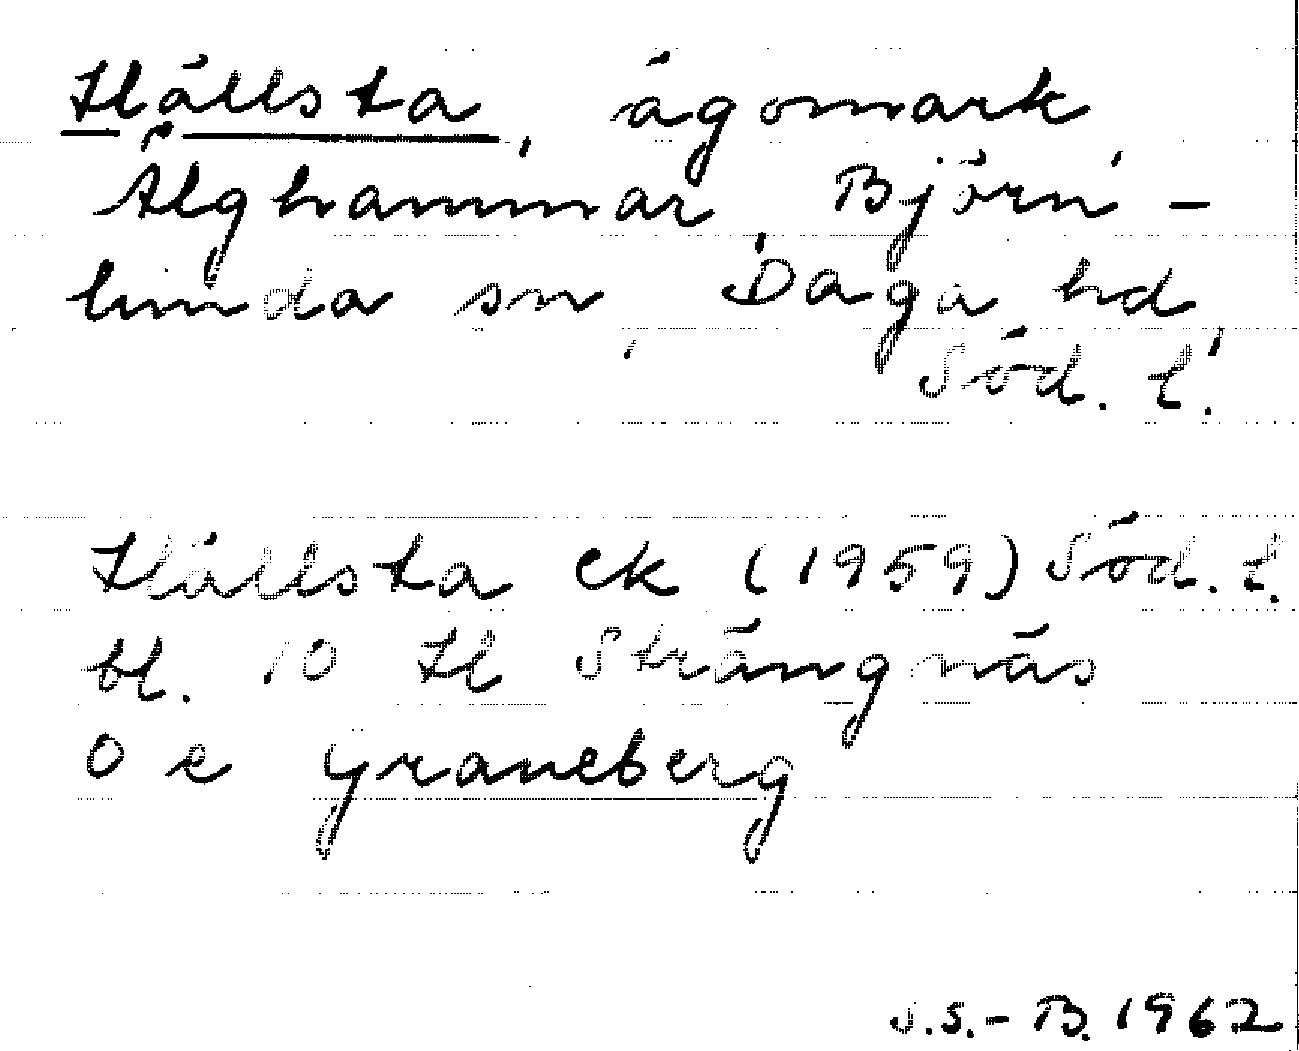 Hållsta, ägomark
Älghammar, Björn-
lunda sn, Daga hd,
Söd. l.
Hållsta ek (1959) Söd. l.
bl. 10 H Strängnäs
O e Graneberg
S.S.-B. 1962